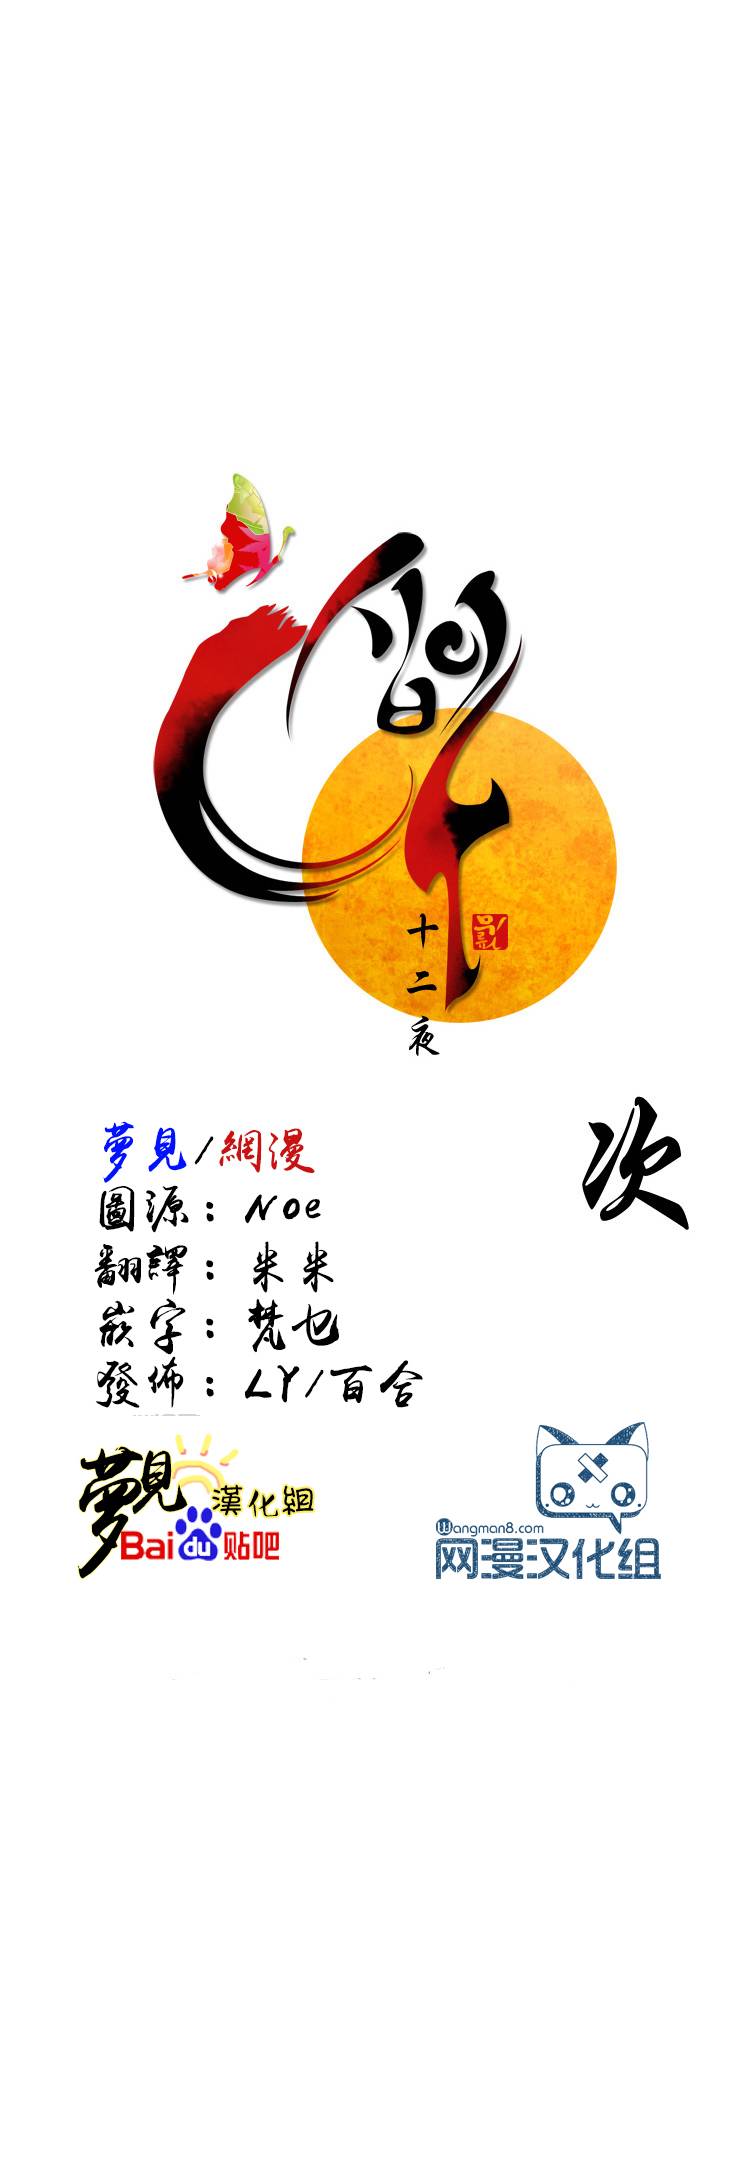 十二夜
次
夢見/網漫
圖源：Noe
翻譯：米米
嵌字：梵乜
發佈：LY/百合
夢見 漢化組
Bai du 贴吧
Wangman8.com
网漫汉化组